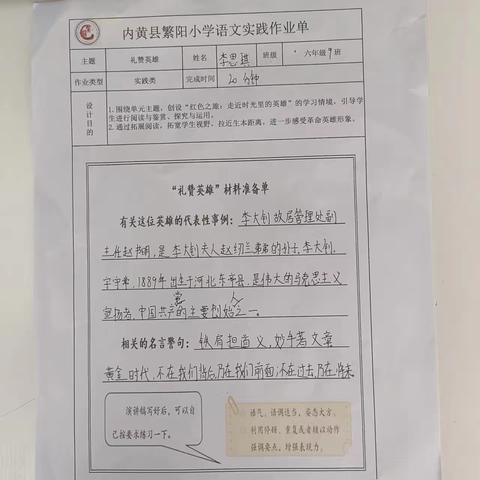 内黄县繁阳小学语文实践作业单
主题 礼赞英雄 姓名 李思琪 班级 六年级9班
作业类型 实践类 完成时间 20分钟
设计目的
1.围绕单元主题，创设“红色之旅：走近时光里的英雄”的学习情境，引导学
生进行阅读与鉴赏、探究与运用。
2.通过拓展阅读，拓宽学生视野，拉近生本距离，进一步感受革命英雄形象。
“礼赞英雄”材料准备单
有关这位英雄的代表性事例：李大钊故居管理处副
主任赵书明，是李大钊夫人赵纫兰弟弟的孙子，李大钊，
字守常，1889年出生于河北乐亭县，是伟大的马克思主义
宣扬者，中国共产党的主要创始人之一。
相关的名言警句：铁肩担道义，妙手著文章
黄金时代，不在我们背后，乃在我们前面；不在过去，乃在将来
演讲稿写好后，可以自
己按要求练习一下。
语气、语调适当，姿态大方。
利用停顿、重复或者辅以动作
强调要点，增强表现力。